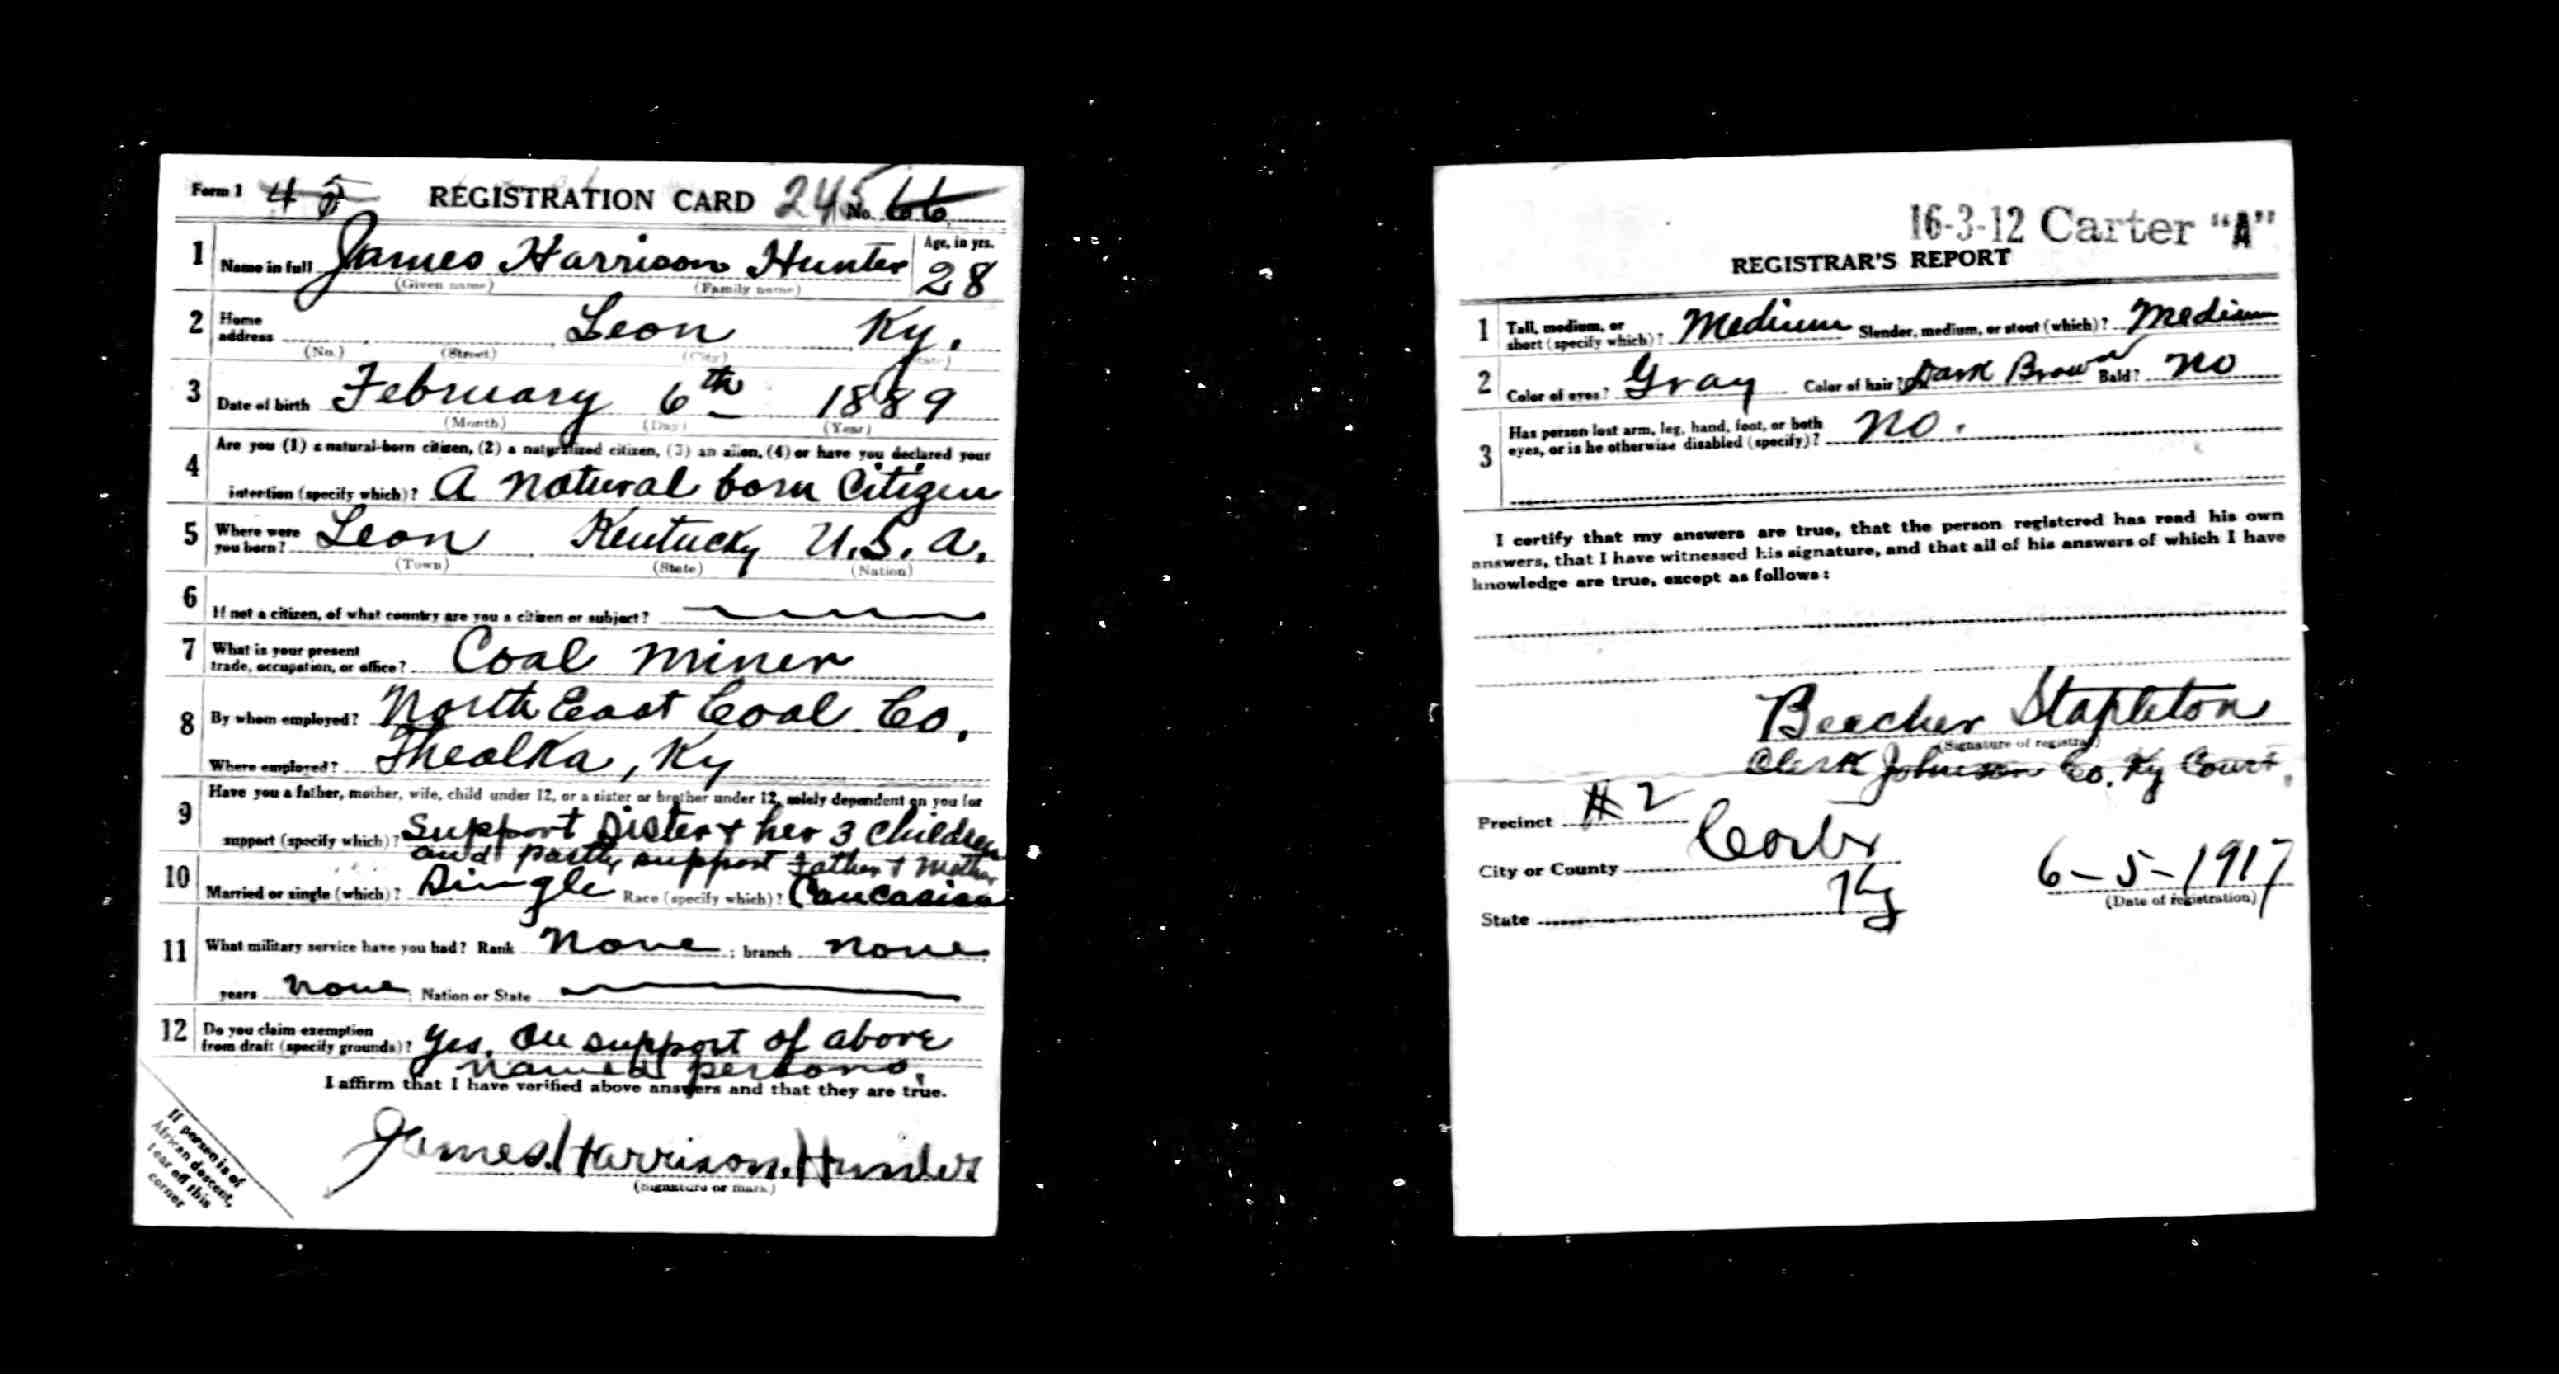 Form 1 45 REGISTRATION CARD 245 No. 66
1 Name in full James Harrison Hunter Age, in yrs. 28
(Given name) (Family name)
2 Home address Leon Ky.
(No.) (Street) (City) (State)
3 Date of birth February 6th 1889
(Month) (Day) (Year)
4 Are you (1) a natural-born citizen, (2) a naturalized citizen, (3) an alien, (4) or have you declared your
intention (specify which)? A natural born Citizen
5 Where were you born? Leon Kentucky U.S.A.
(Town) (State) (Nation)
6 If not a citizen, of what country are you a citizen or subject?
7 What is your present trade, occupation, or office? Coal miner
8 By whom employed? North East Coal Co.
Where employed? Thealka, Ky
9 Have you a father, mother, wife, child under 12, or a sister or brother under 12, solely dependent on you for
support (specify which)? Support Sister + her 3 children
and partly support Father + Mother
10 Married or single (which)? Single Race (specify which)? Caucasian
11 What military service have you had? Rank None ; branch none
years none ; Nation or State
12 Do you claim exemption from draft (specify grounds)? Yes. On support of above
named persons.
I affirm that I have verified above answers and that they are true.
James. Harrison. Hunter
(Signature or mark)
If person is of
African descent,
tear off this
corner
16-3-12 Carter "A"
REGISTRAR'S REPORT
1 Tall, medium, or short (specify which)? Medium Slender, medium, or stout (which)? Medium
2 Color of eyes? Gray Color of hair? Dark Brown Bald? No
3 Has person lost arm, leg, hand, foot, or both
eyes, or is he otherwise disabled (specify)? No.
I certify that my answers are true, that the person registered has read his own
answers, that I have witnessed his signature, and that all of his answers of which I have
knowledge are true, except as follows:
Beecher Stapleton
(Signature of registrar)
Clerk Johnson Co. Ky Court.
Precinct #2
City or County Carter
State Ky
6-5-1917
(Date of registration)